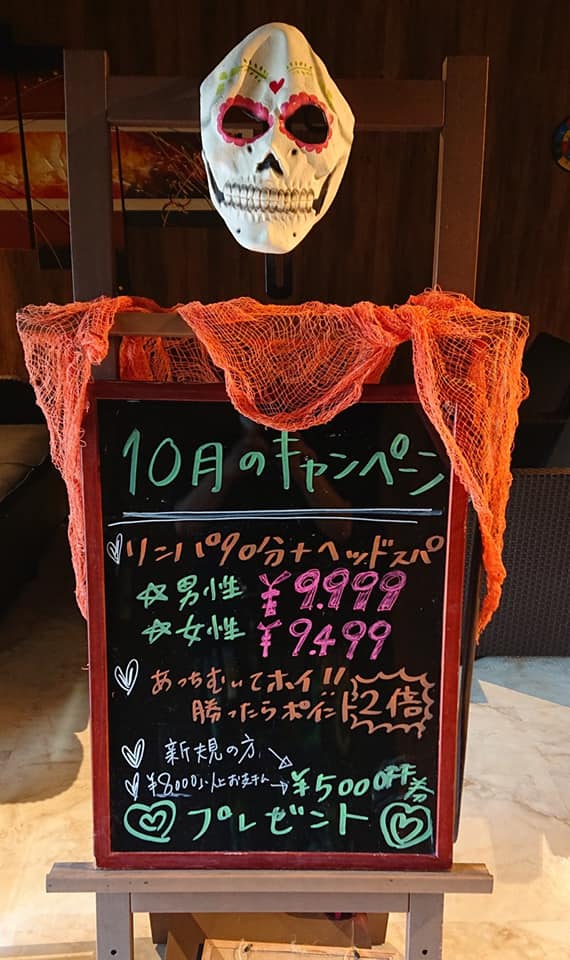 10月のキャンペーン
リンパ90分+ヘッドスパ
☆男性 ¥9.999
☆女性 ¥9.499
あっちむいてホイ!!
勝ったらポイント2倍
新規の方
¥8,000以上お支払い→¥500OFF券
プレゼント